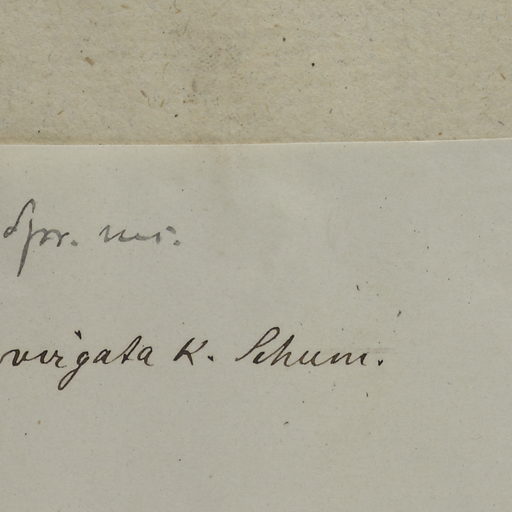 Spr. ms.
virgata K. Schum.